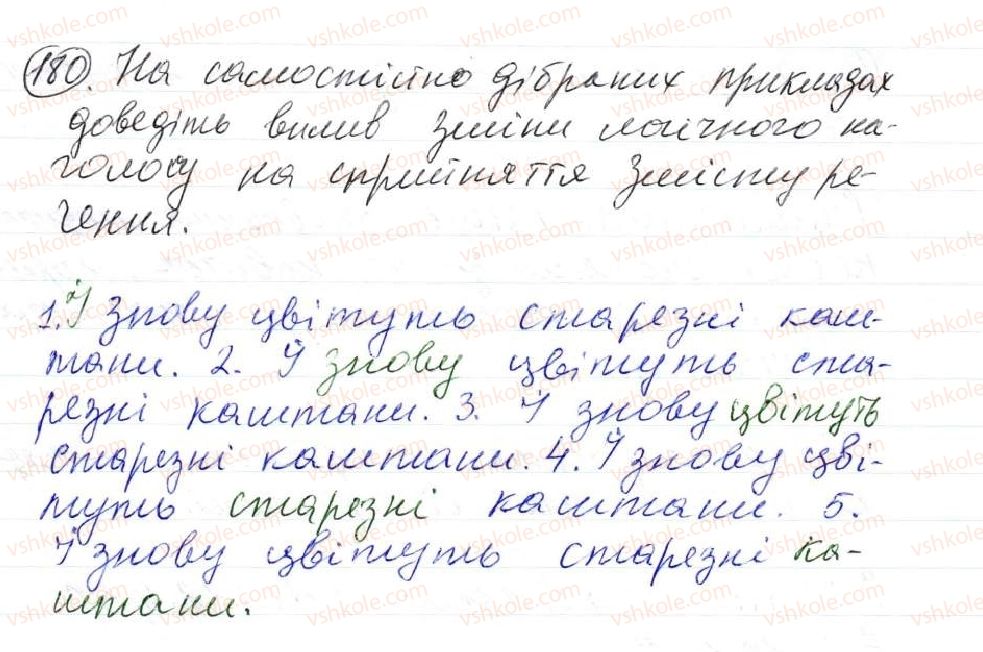 180. На самостійно дібраних прикладах
доведіть вплив зміни логічного на-
голосу на сприйняття змісту ре-
чення.
1. І знову цвітуть старезні каш-
тани. 2. І знову цвітуть ста-
резні каштани. 3. І знову цвітуть
старезні каштани. 4. І знову цві-
туть старезні каштани. 5.
І знову цвітуть старезні ка-
штани.